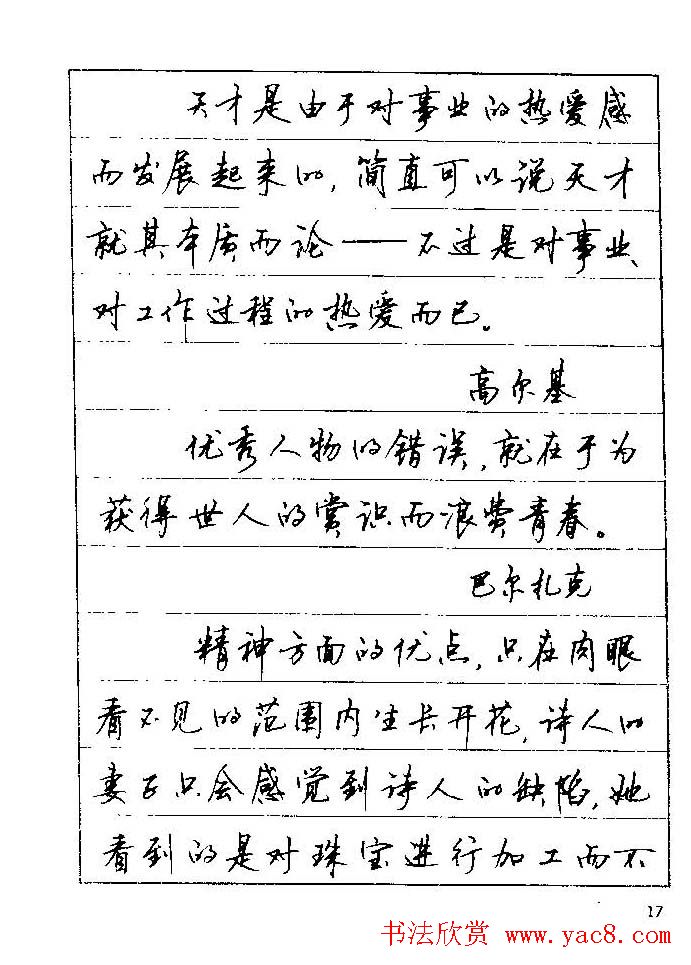 天才是由于对事业的热爱感
而发展起来的,简直可以说天才
就其本质而论——不过是对事业、
对工作过程的热爱而已。
高尔基
优秀人物的错误,就在于为
获得世人的赏识而浪费青春。
巴尔扎克
精神方面的优点,只在肉眼
看不见的范围内生长开花,诗人的
妻子只会感觉到诗人的缺陷,她
看到的是对珠宝进行加工而不
17
书法欣赏 www.yac8.com